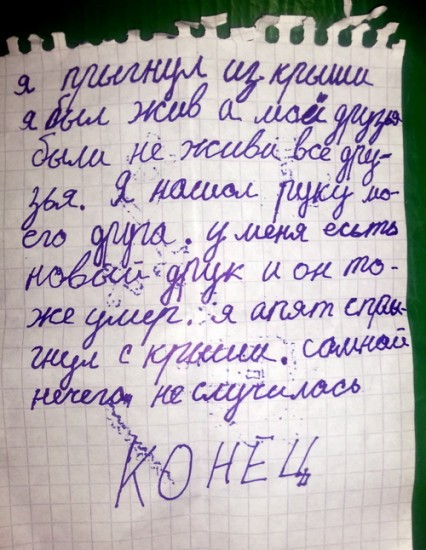 я прыгнул из крыши
я был жив а мой друзья
были не живи все дру-
зья. Я нашол руку мо-
его друга. у меня есть
новый друк и он то-
же умер. я апят спры-
гнул с крыши. самной
нечего не случилась
КОНЕЦ